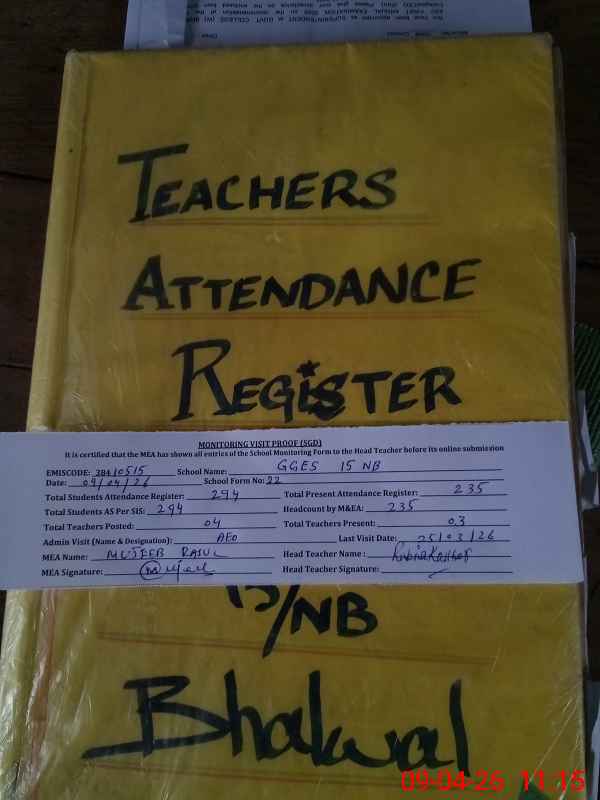 TEACHERS
ATTENDANCE
REGISTER
MONITORING VISIT PROOF (SGD)
It is certified that the MEA has shown all entries of the School Monitoring Form to the Head Teacher before its online submission
EMISCODE: 38410515 School Name: GGES 15 NB
Date: 09/04/26 School Form No: 22
Total Students Attendance Register: 294 Total Present Attendance Register: 235
Total Students AS Per SIS: 294 Headcount by M&EA: 235
Total Teachers Posted: 04 Total Teachers Present: 03
Admin Visit (Name & Designation): AEO Last Visit Date: 25/03/26
MEA Name: MUJEEB RASUL Head Teacher Name: Rubina Kausar
MEA Signature: Head Teacher Signature:
15/NB
Bhalwal
09-04-26 11:15